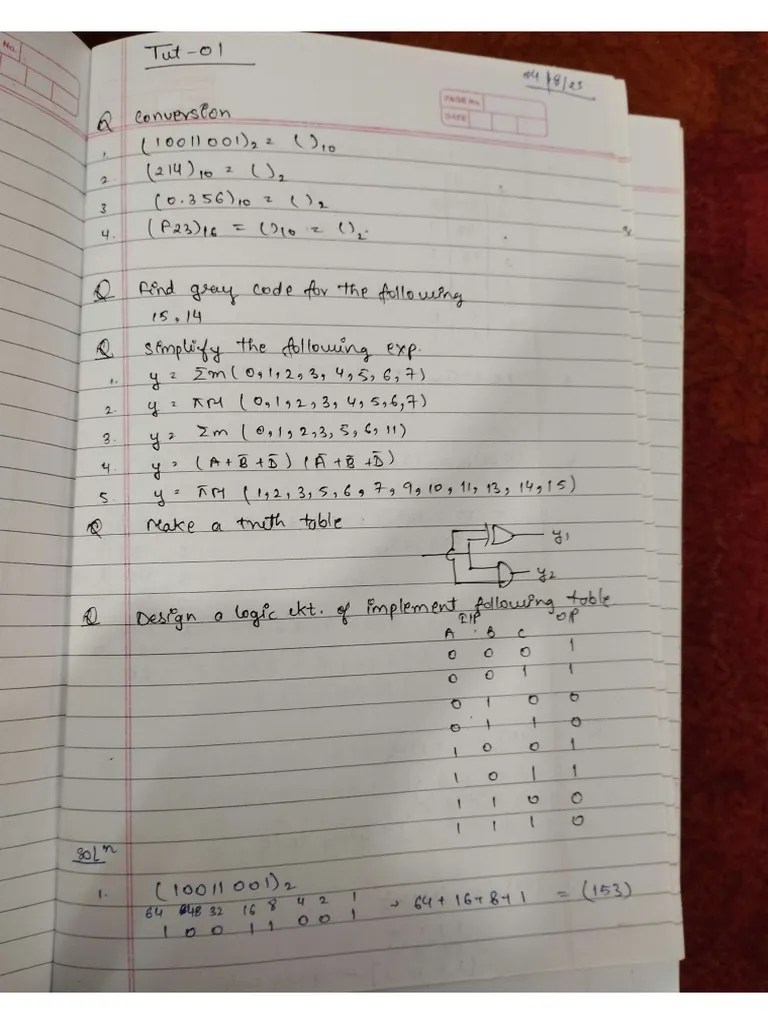 No.
Tut-01
PAGE No.
DATE
Q Conversion
1. (10011001)₂ = ( )₁₀
2. (214)₁₀ = ( )₂
3 (0.356)₁₀ = ( )₂
4. (F23)₁₆ = ( )₁₀ = ( )₂.
Q Find gray code for the following
15, 14
Q Simplify the following exp.
1. y = Σm(0,1,2,3,4,5,6,7)
2. y = πM (0,1,2,3,4,5,6,7)
3. y = Σm (0,1,2,3,5,6,11)
4. y = (A+B̄+D̄) (Ā+B̄+D̄)
5. y = πM (1,2,3,5,6,7,9,10,11,13,14,15)
Q Make a truth table
y₁
y₂
Q Design a logic ckt. of implement following table
I/P O/P
A B C
0 0 0 1
0 0 1 1
0 1 0 0
0 1 1 0
1 0 0 1
1 0 1 1
1 1 0 0
1 1 1 0
Solⁿ
1. (10011001)₂
64 32 16 8 4 2 1
1 0 0 1 1 0 0 1 , 64+16+8+1 = (153)